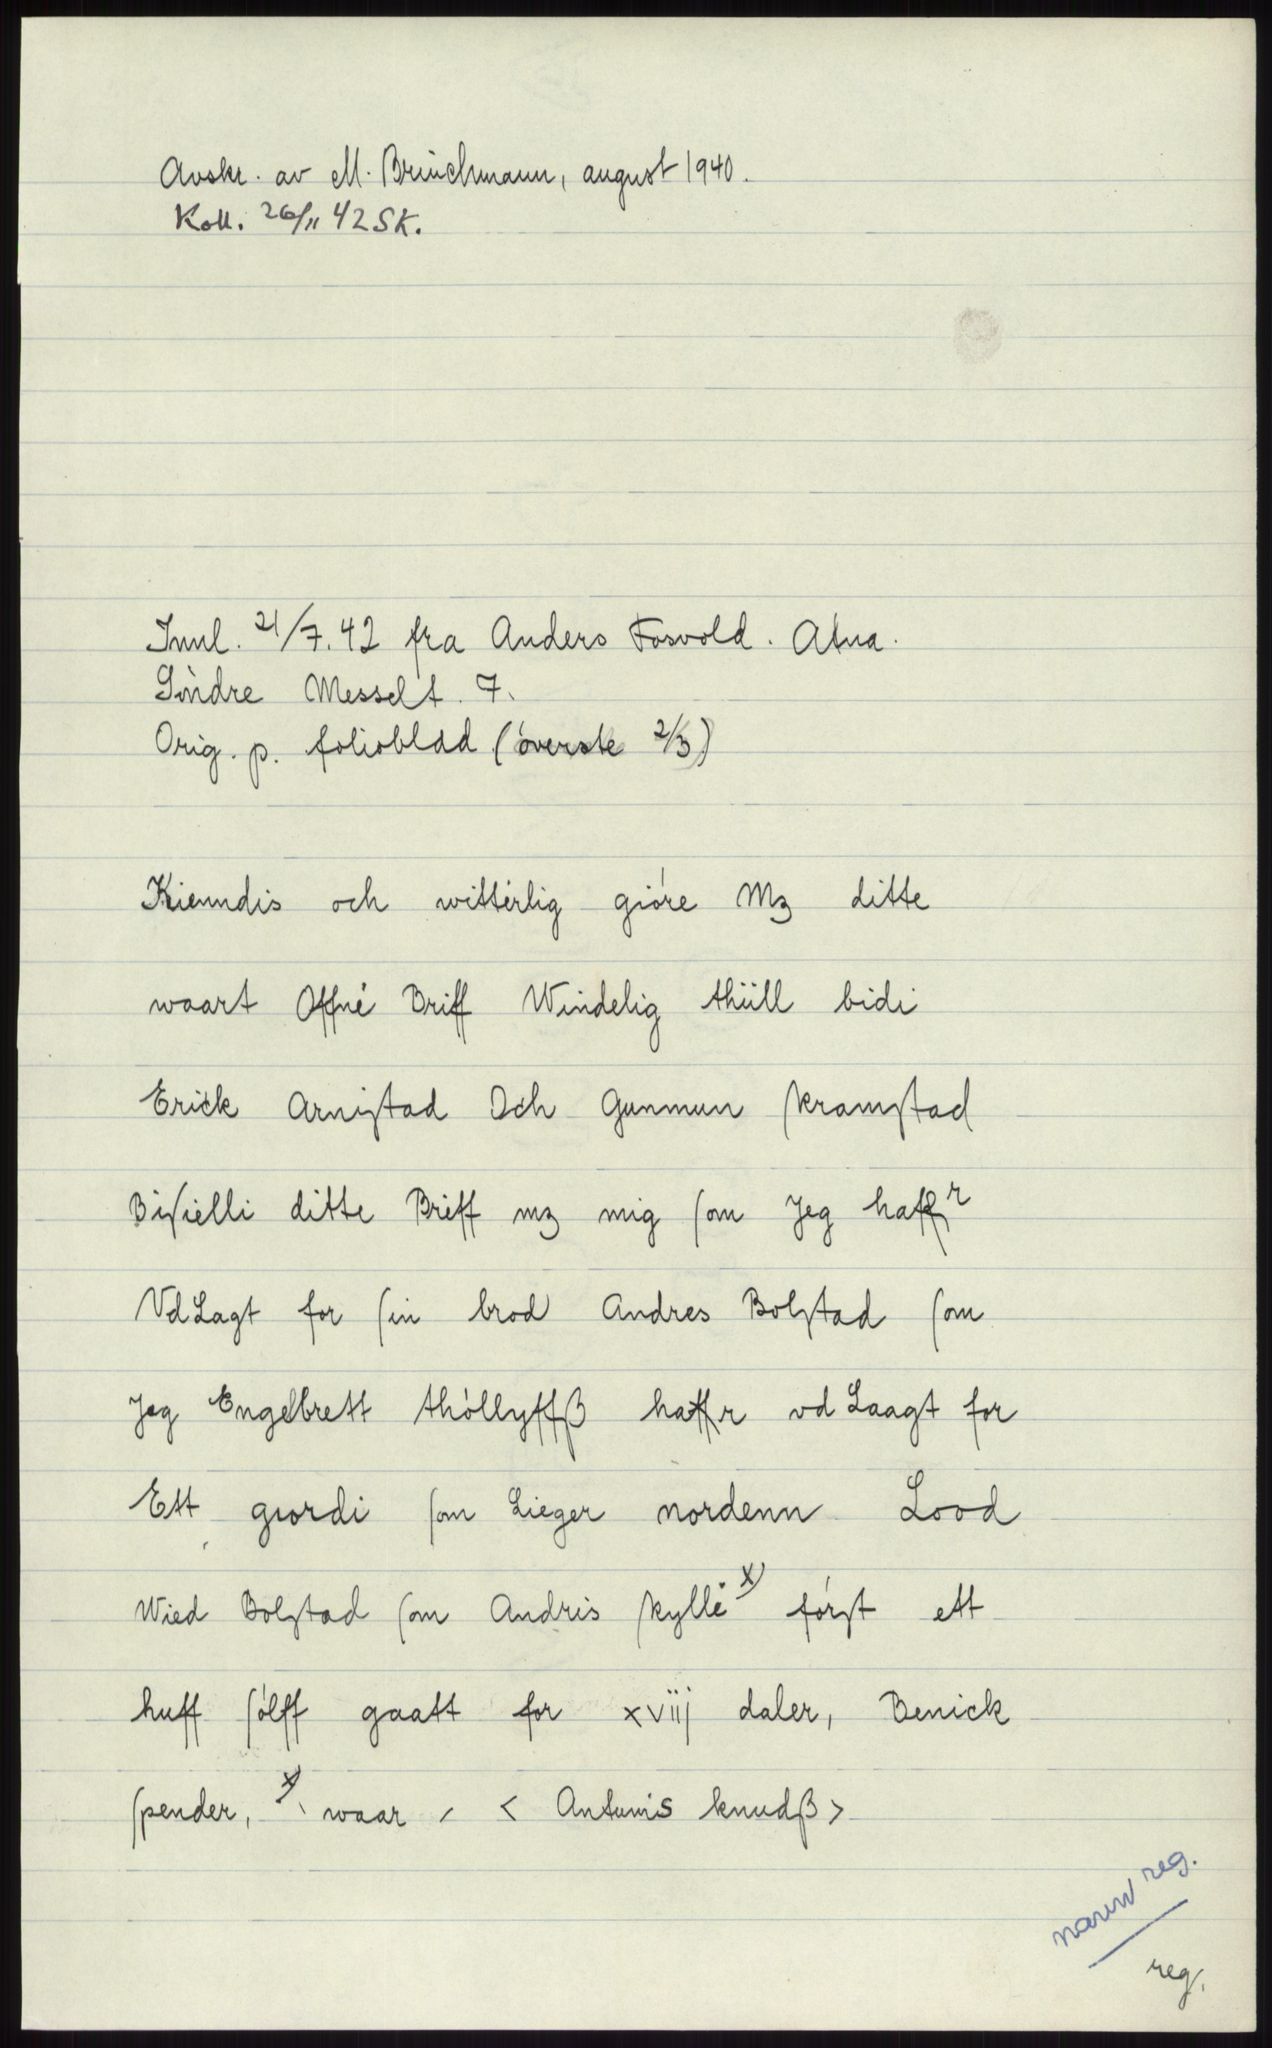 Avskr. av M. Brinchmann, august 1940.
Koll. 26/11 42 SK.
Innl. 21/7.42 fra Anders Fosvold. Atna.
Søndre Messelt 7.
Orig. p. folioblad (øverste 2/3)
Kienndis och witterlig gióre Mꝫ ditte
waart Offne Briff Windelig thüll bidi
Erick Arniſtad Och Gunmun ſkramſtad
Biſielli ditte Breff mꝫ mig ſom Jeg haffr
Vd Lagt for ſin brod Andres Bolſtad ſom
Jeg Engelbrett thóllyffß haffr vd Laagt for
Ett giordi ſom Lieger nordenn Lood
Wied Bolſtad ſom Andris ſkylle x) fórſt ett
huff ſólff gaatt for xviij daler, Benick
ſpender, x) waar < Antunis knudß >
navnreg.
reg.